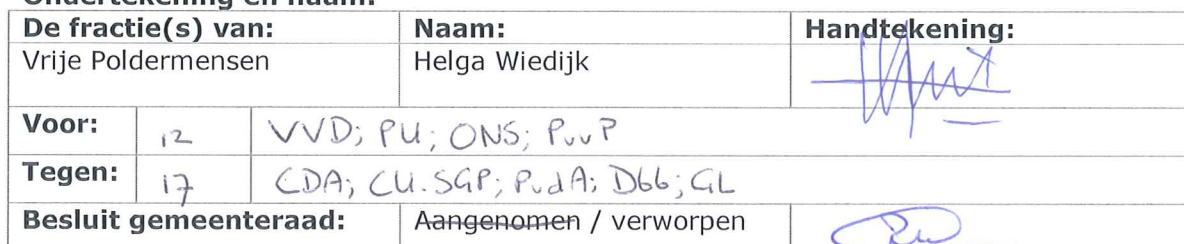 Ondertekening en naam:
De fractie(s) van: Naam: Handtekening:
Vrije Poldermensen Helga Wiedijk
Voor: 12 VVD; PU; ONS; PvvP
Tegen: 17 CDA; CU.SGP; PvdA; D66; GL
Besluit gemeenteraad: Aangenomen / verworpen